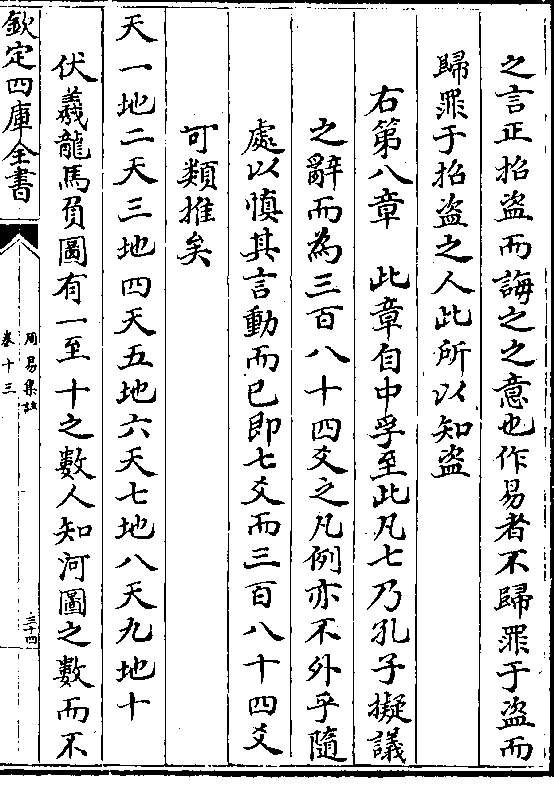 之言正招盜而誨之之意也作易者不歸罪于盜而
歸罪于招盜之人此所以知盜
右第八章　此章自中孚至此凡七乃孔子擬議
之辭而為三百八十四爻之凡例亦不外乎隨
處以慎其言動而已即七爻而三百八十四爻
可類推矣
天一地二天三地四天五地六天七地八天九地十
伏羲龍馬負圖有一至十之數人知河圖之數而不
欽定四庫全書
周易集註
卷十三
三十四